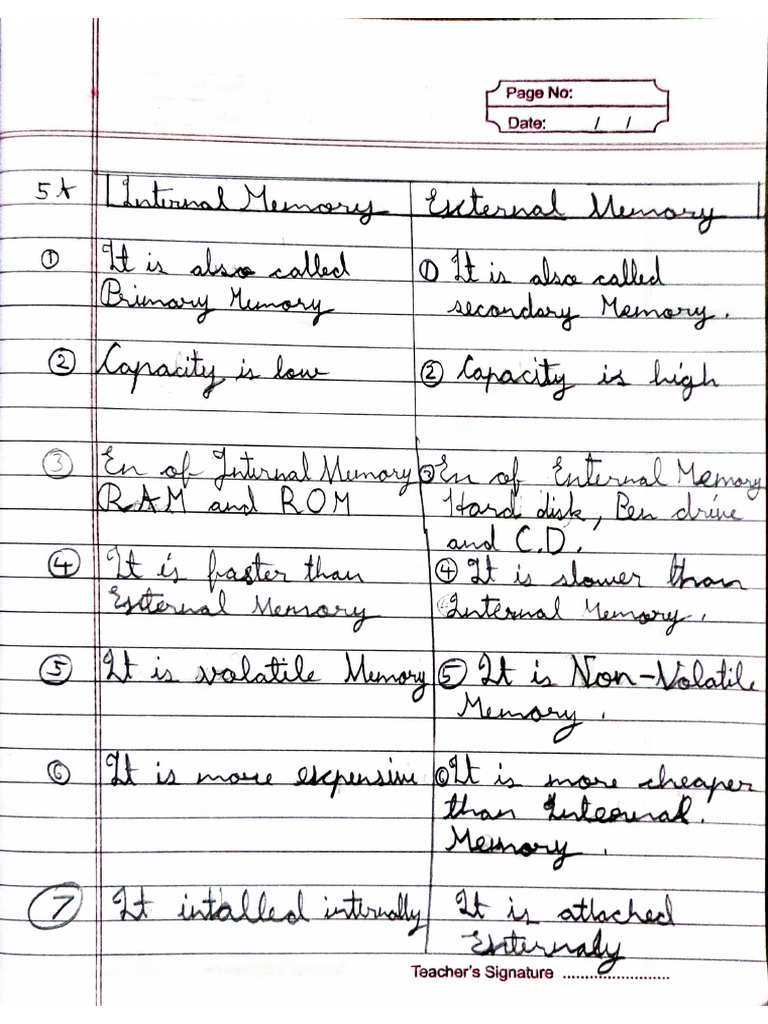 Page No:
Date: / /
5 * Internal Memory External Memory
① It is also called ① It is also called
Primary Memory secondary Memory.
② Capacity is low ② Capacity is high
③ Ex of Internal Memory ③ Ex of External Memory
RAM and ROM Hard disk, Pen drive
and C.D.
④ It is faster than ④ It is slower than
External Memory Internal Memory.
⑤ It is volatile Memory ⑤ It is Non-Volatile
Memory.
⑥ It is more expensive ⑥ It is more cheaper
than Internal.
Memory.
⑦ It intalled internally It is attached
Externaly
Teacher's Signature ........................